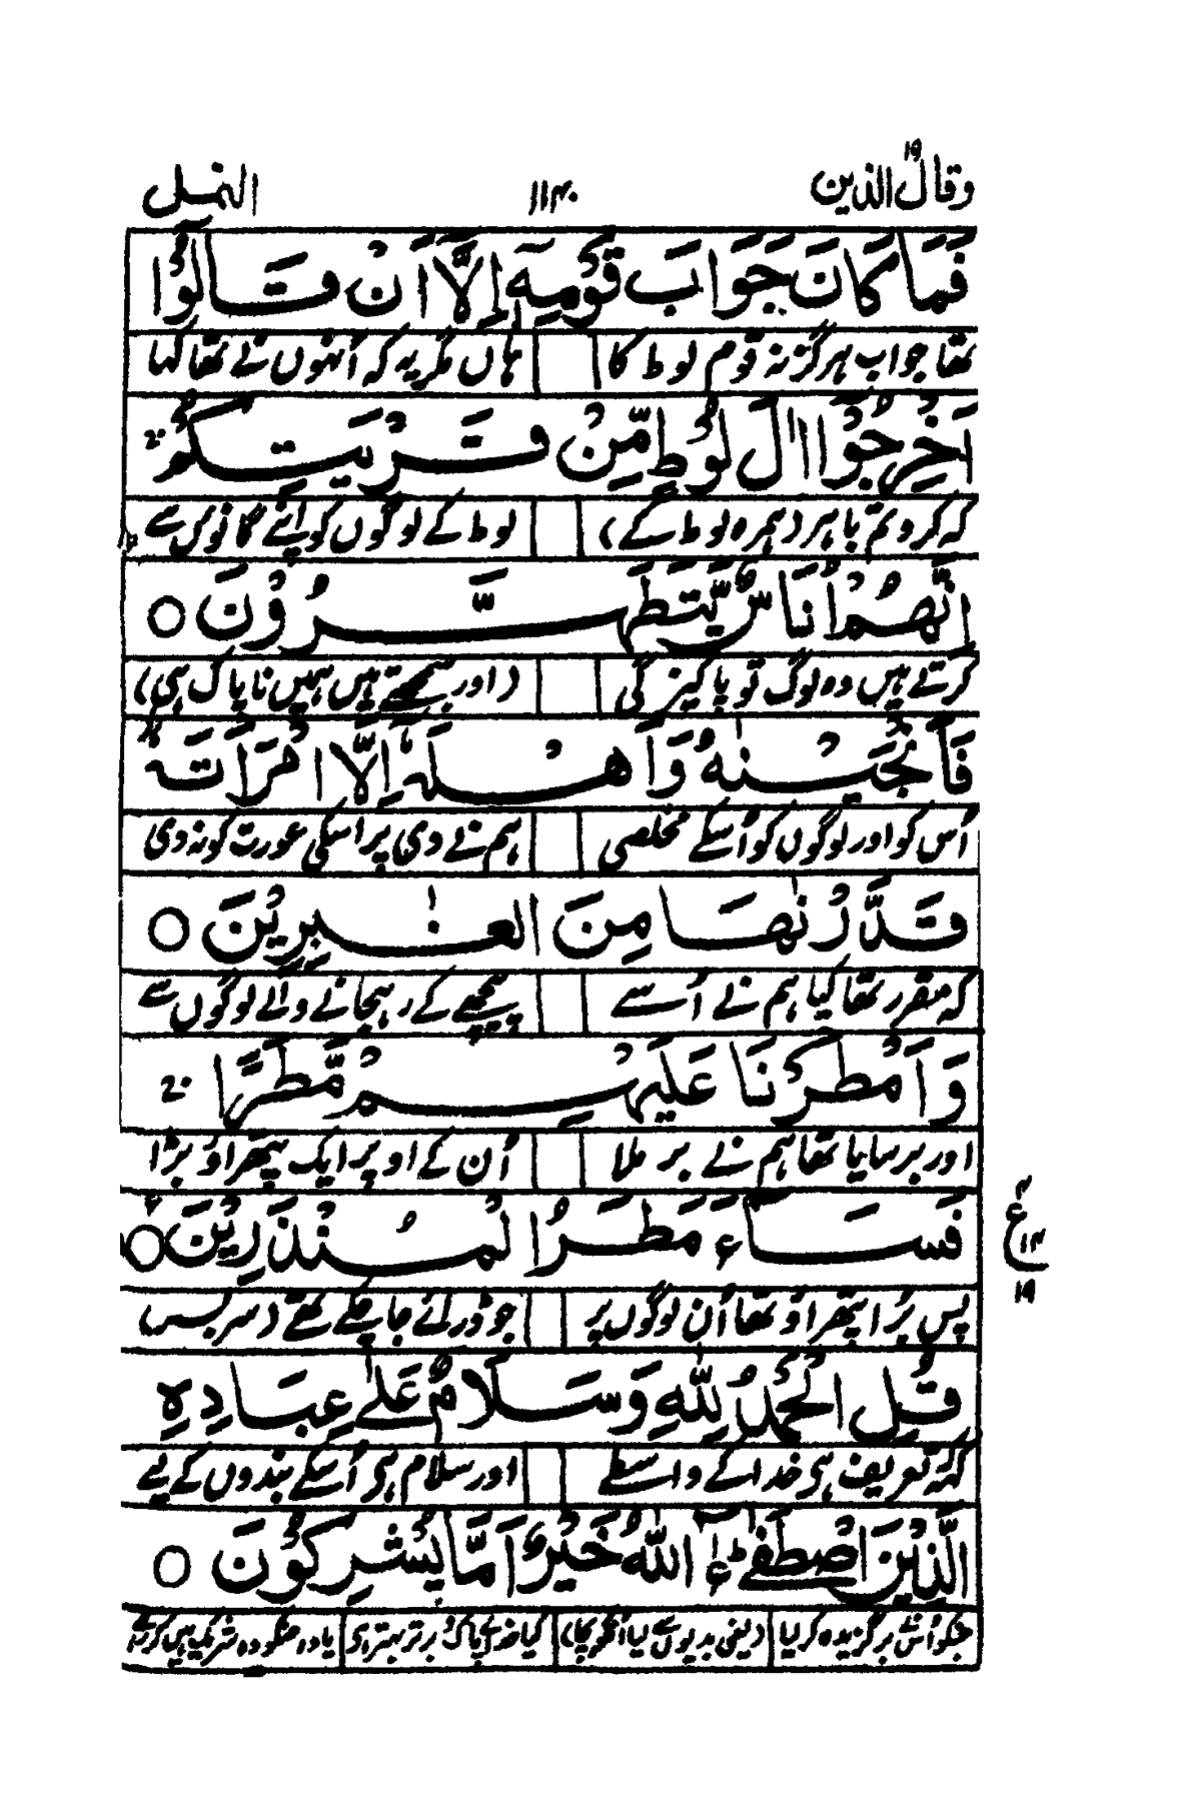 وقال الذين ۱۹ ۱۱۴۰ النمل
فَمَا كَانَ جَوَابَ قَوْمِهٖٓ اِلَّآ اَنْ قَالُوْٓا
تھا جواب ہرگز نہ قوم لوط کا ہاں مگر یہ کہ اُنہوں نے تھا کہا
اَخْرِجُوْٓا اٰلَ لُوْطٍ مِّنْ قَرْيَتِكُمْ ۚ
کہ کر دو تم باہر (ہمرہ لوط کے) لوط کے لوگوں کو اپنے گانوں سے
اِنَّهُمْ اُنَاسٌ يَّتَطَهَّرُوْنَ ○
کرتے ہیں وہ لوگ تو پاکیزگی (اور سمجھتے ہیں ہمیں ناپاک ہی)
فَاَنْجَيْنٰهُ وَاَهْلَهٗٓ اِلَّا امْرَاَتَهٗ
اُس کو اور لوگوں کو اُسکے مخلصی ہم نے دی پر اسکی عورت کو نہ دی
قَدَّرْنٰهَا مِنَ الْغٰبِرِيْنَ ○
کہ مقرر تھا کیا ہم نے اُسے پیچھے کے رہجانے والے لوگوں سے
وَاَمْطَرْنَا عَلَيْهِمْ مَّطَرًا ۚ
اور برسایا تھا ہم نے بر ملا اُن کے اوپر ایک پتھراؤ بڑا
فَسَآءَ مَطَرُ الْمُنْذَرِيْنَ ○
پس بُرا پتھراؤ تھا اُن لوگوں پر جو ڈرائے جا چکے تھے (سربسر)
۴ ع ۱۴ ۱۹
قُلِ الْحَمْدُ لِلّٰهِ وَسَلَامٌ عَلٰى عِبَادِهِ
کہہ تعریف ہی خدا کے واسطے اور سلام ہی اُسکے بندوں کے لیے
الَّذِيْنَ اصْطَفٰى ۗ ءٰٓاللّٰهُ خَيْرٌ اَمَّا يُشْرِكُوْنَ ○
جنکو اُس نے برگزیدہ کر لیا (یعنی بدیوں سے لیا انکو بچا) کیا خدائے پاک برتر بہتر ہی یا وہ جنکو وہ شریک ہیں کر رہے